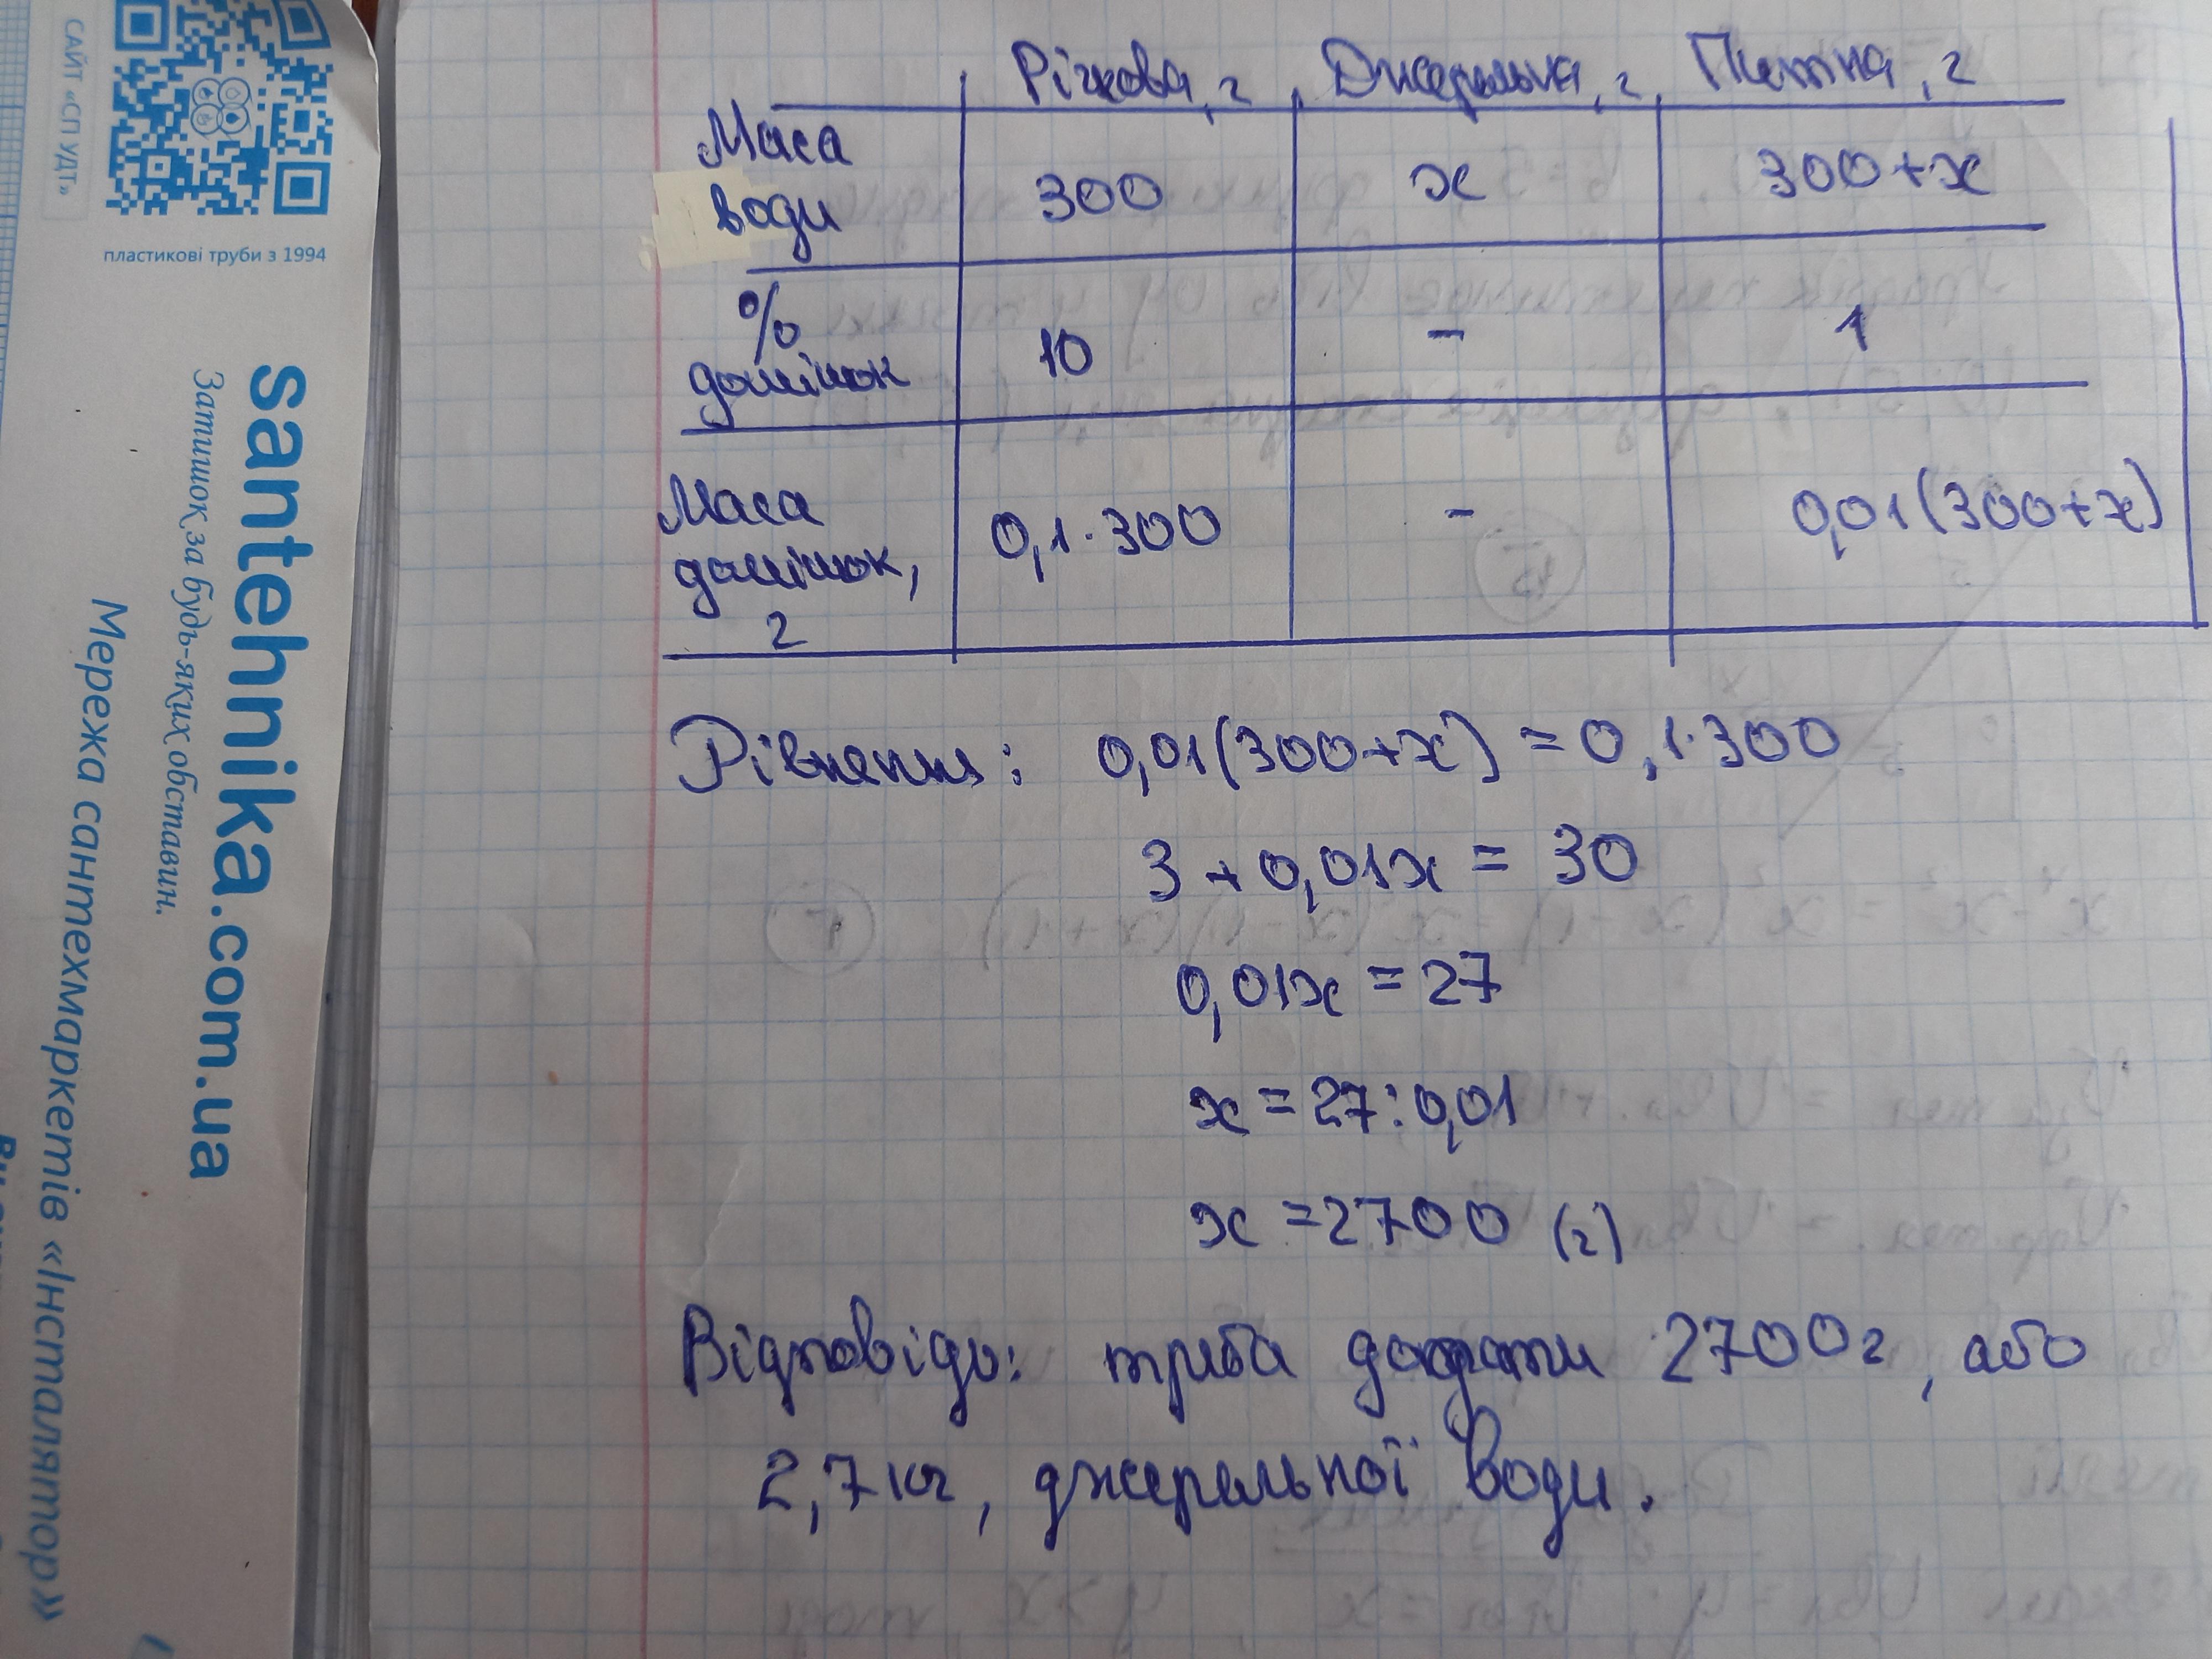 САЙТ «СП УДТ»
пластикові труби з 1994
santehnika.com.ua
Затишок за будь-яких обставин.
Мережа сантехмаркетів «Інсталятор»
Річкова, г Джерельна, г Питна, г
Маса води 300 x 300+x
% домішок 10 - 1
Маса домішок, г 0,1·300 - 0,01(300+x)
Рівняння: 0,01(300+x) = 0,1·300
3 + 0,01x = 30
0,01x = 27
x = 27:0,01
x = 2700 (г)
Відповідь: треба додати 2700г, або
2,7 кг, джерельної води.